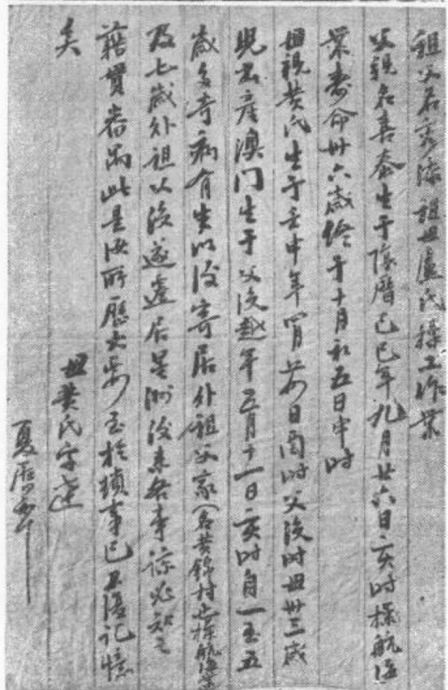 祖父名秀添祖母盧氏操工作業
父親名喜泰生于陰曆己巳年九月廿六日亥时操航海
業寿命卅六歲终于十月初五日申时
母親黄氏生于壬申年四月廿日酉时父没时母卅三歲
児出産澳门生于父没越年三月十一日亥时自一至五
歲多奇病有生以後寄居外祖父家(名黄錦村也操航海業
及七歲外祖父没遂遷居星洲後来各事諒必知之
藉貫番禺此是汝所歷大畧至於瑣事已無復記憶
矣
母黄氏字達
夏历